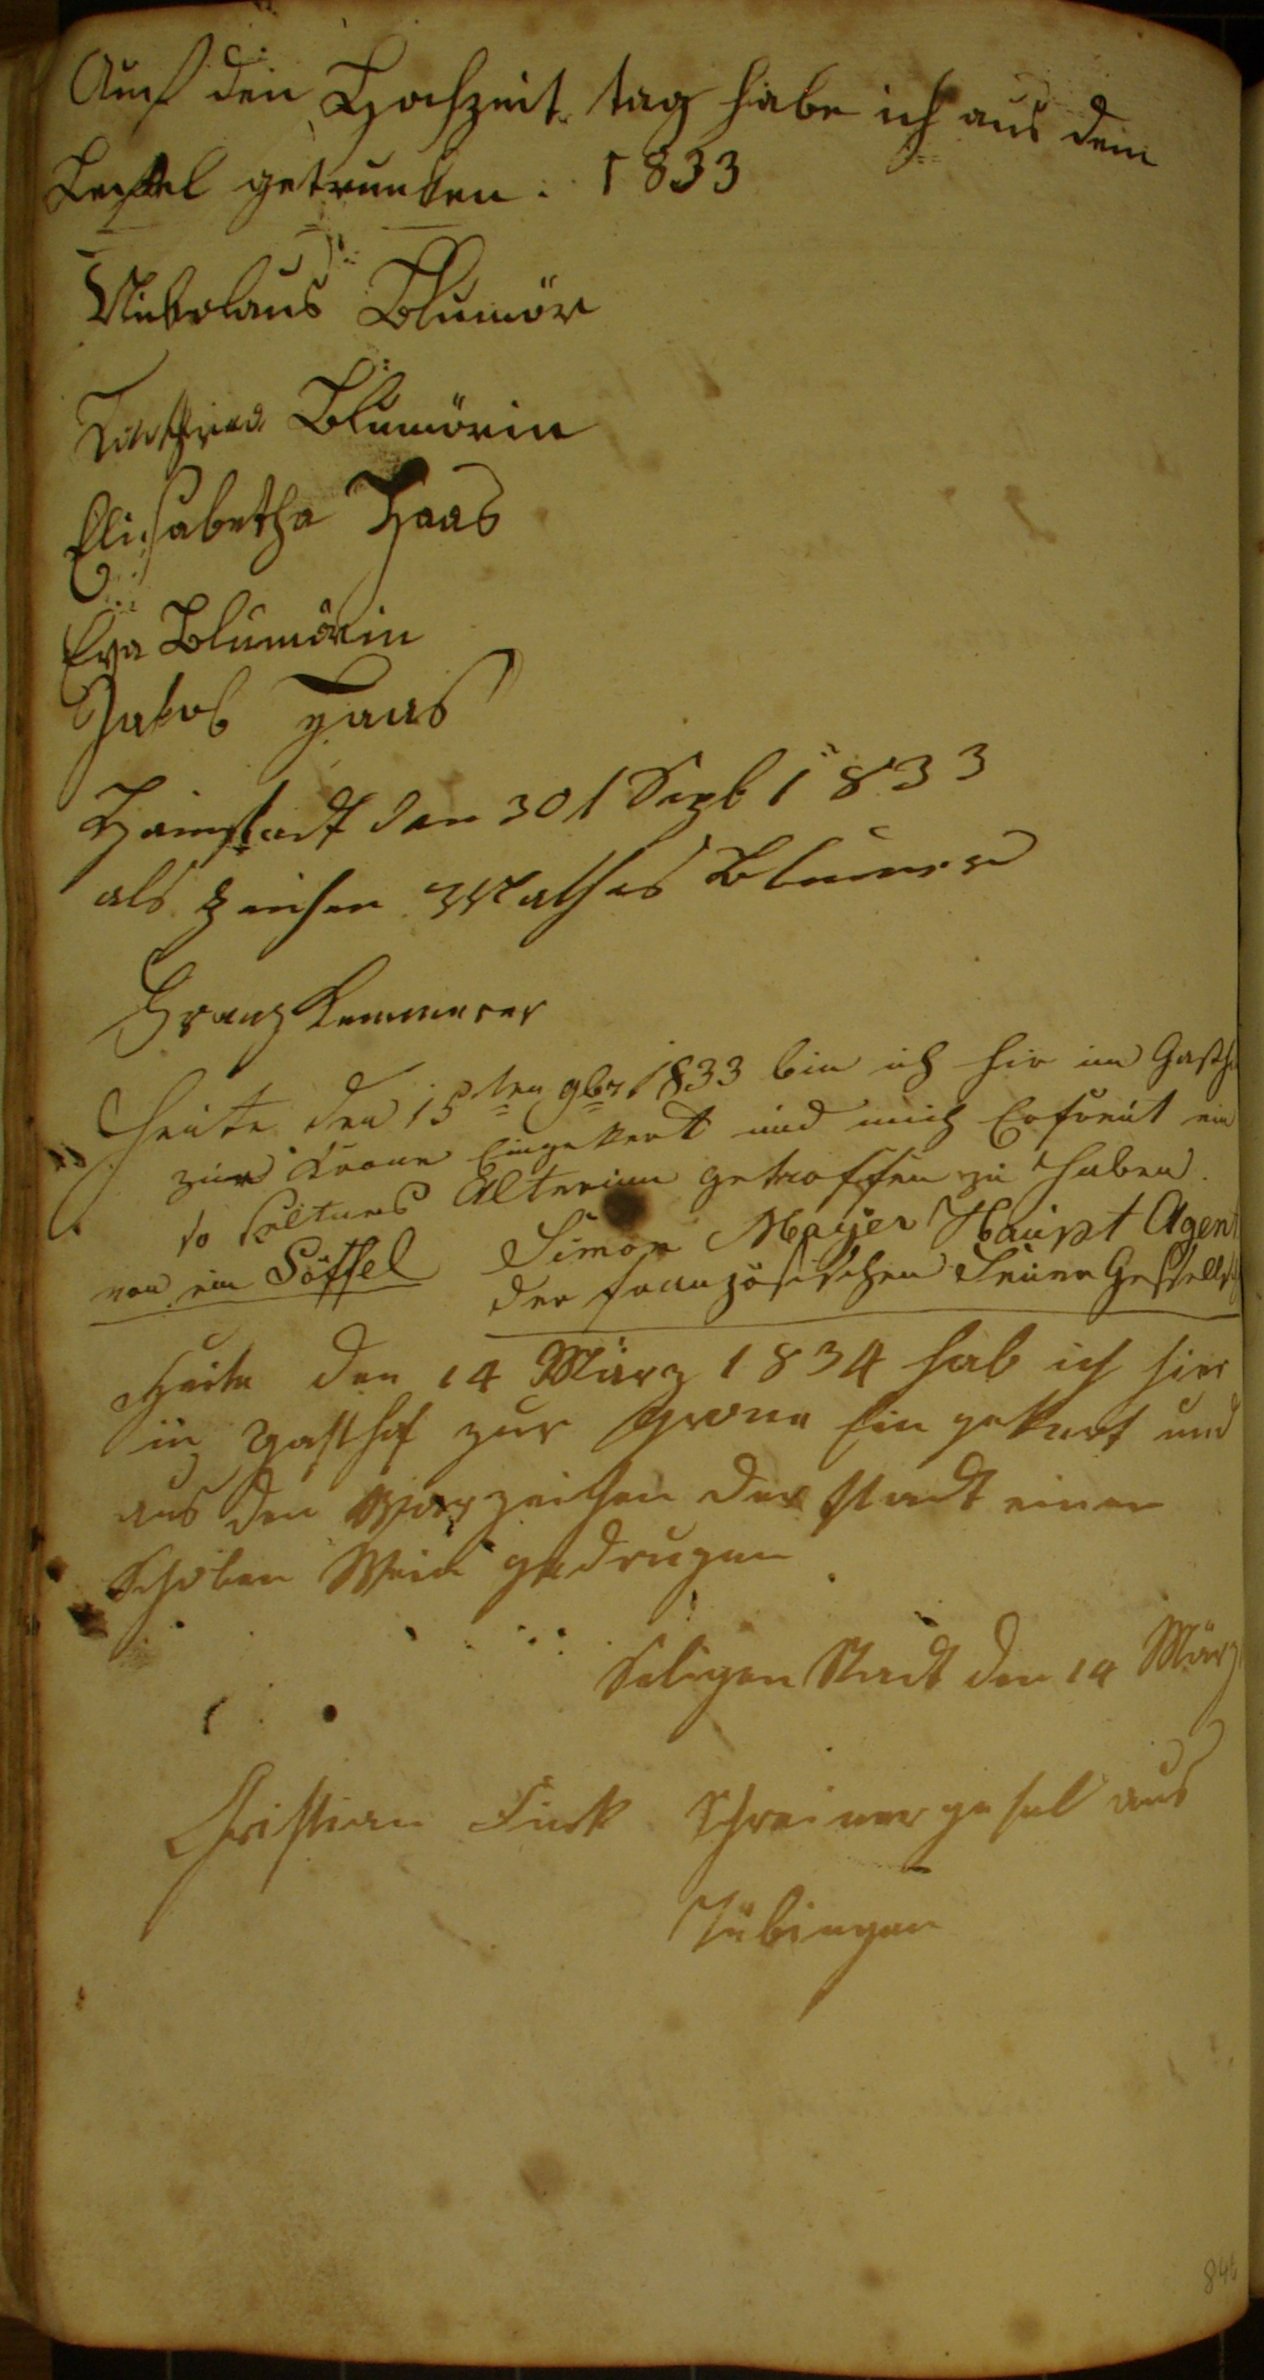 Auf den Hochzeit tag habe ich aus dem
Leffel getrunken. 1833
Nikolaus Blumör
Blumörin
Elisabetha Haas
Eva Blumörin
Jakob Haas
Hainstadt den 30t Sept 1833
als zeichen Mathes Blumör
Franz Kemmerer
Heute den 15ten 9br 1833 bin ich hir im Gasth
zur Krone Eingekert und mich Erfreut ein
so seltnes Alterium getroffen zu haben.
von ein Löffel Simon Mayer Haupt Agent
der französischen Feuer Gesellsch
Heite den 14 März 1834 hab ich hier
in gasthof zur grone Ein gekert und
aus den Warzeichen der stadt einen
Schoben Wein gedrugen
Seligen Stadt den 14 März
Christian Fink Schreinergesel aus
Tübingen
84b